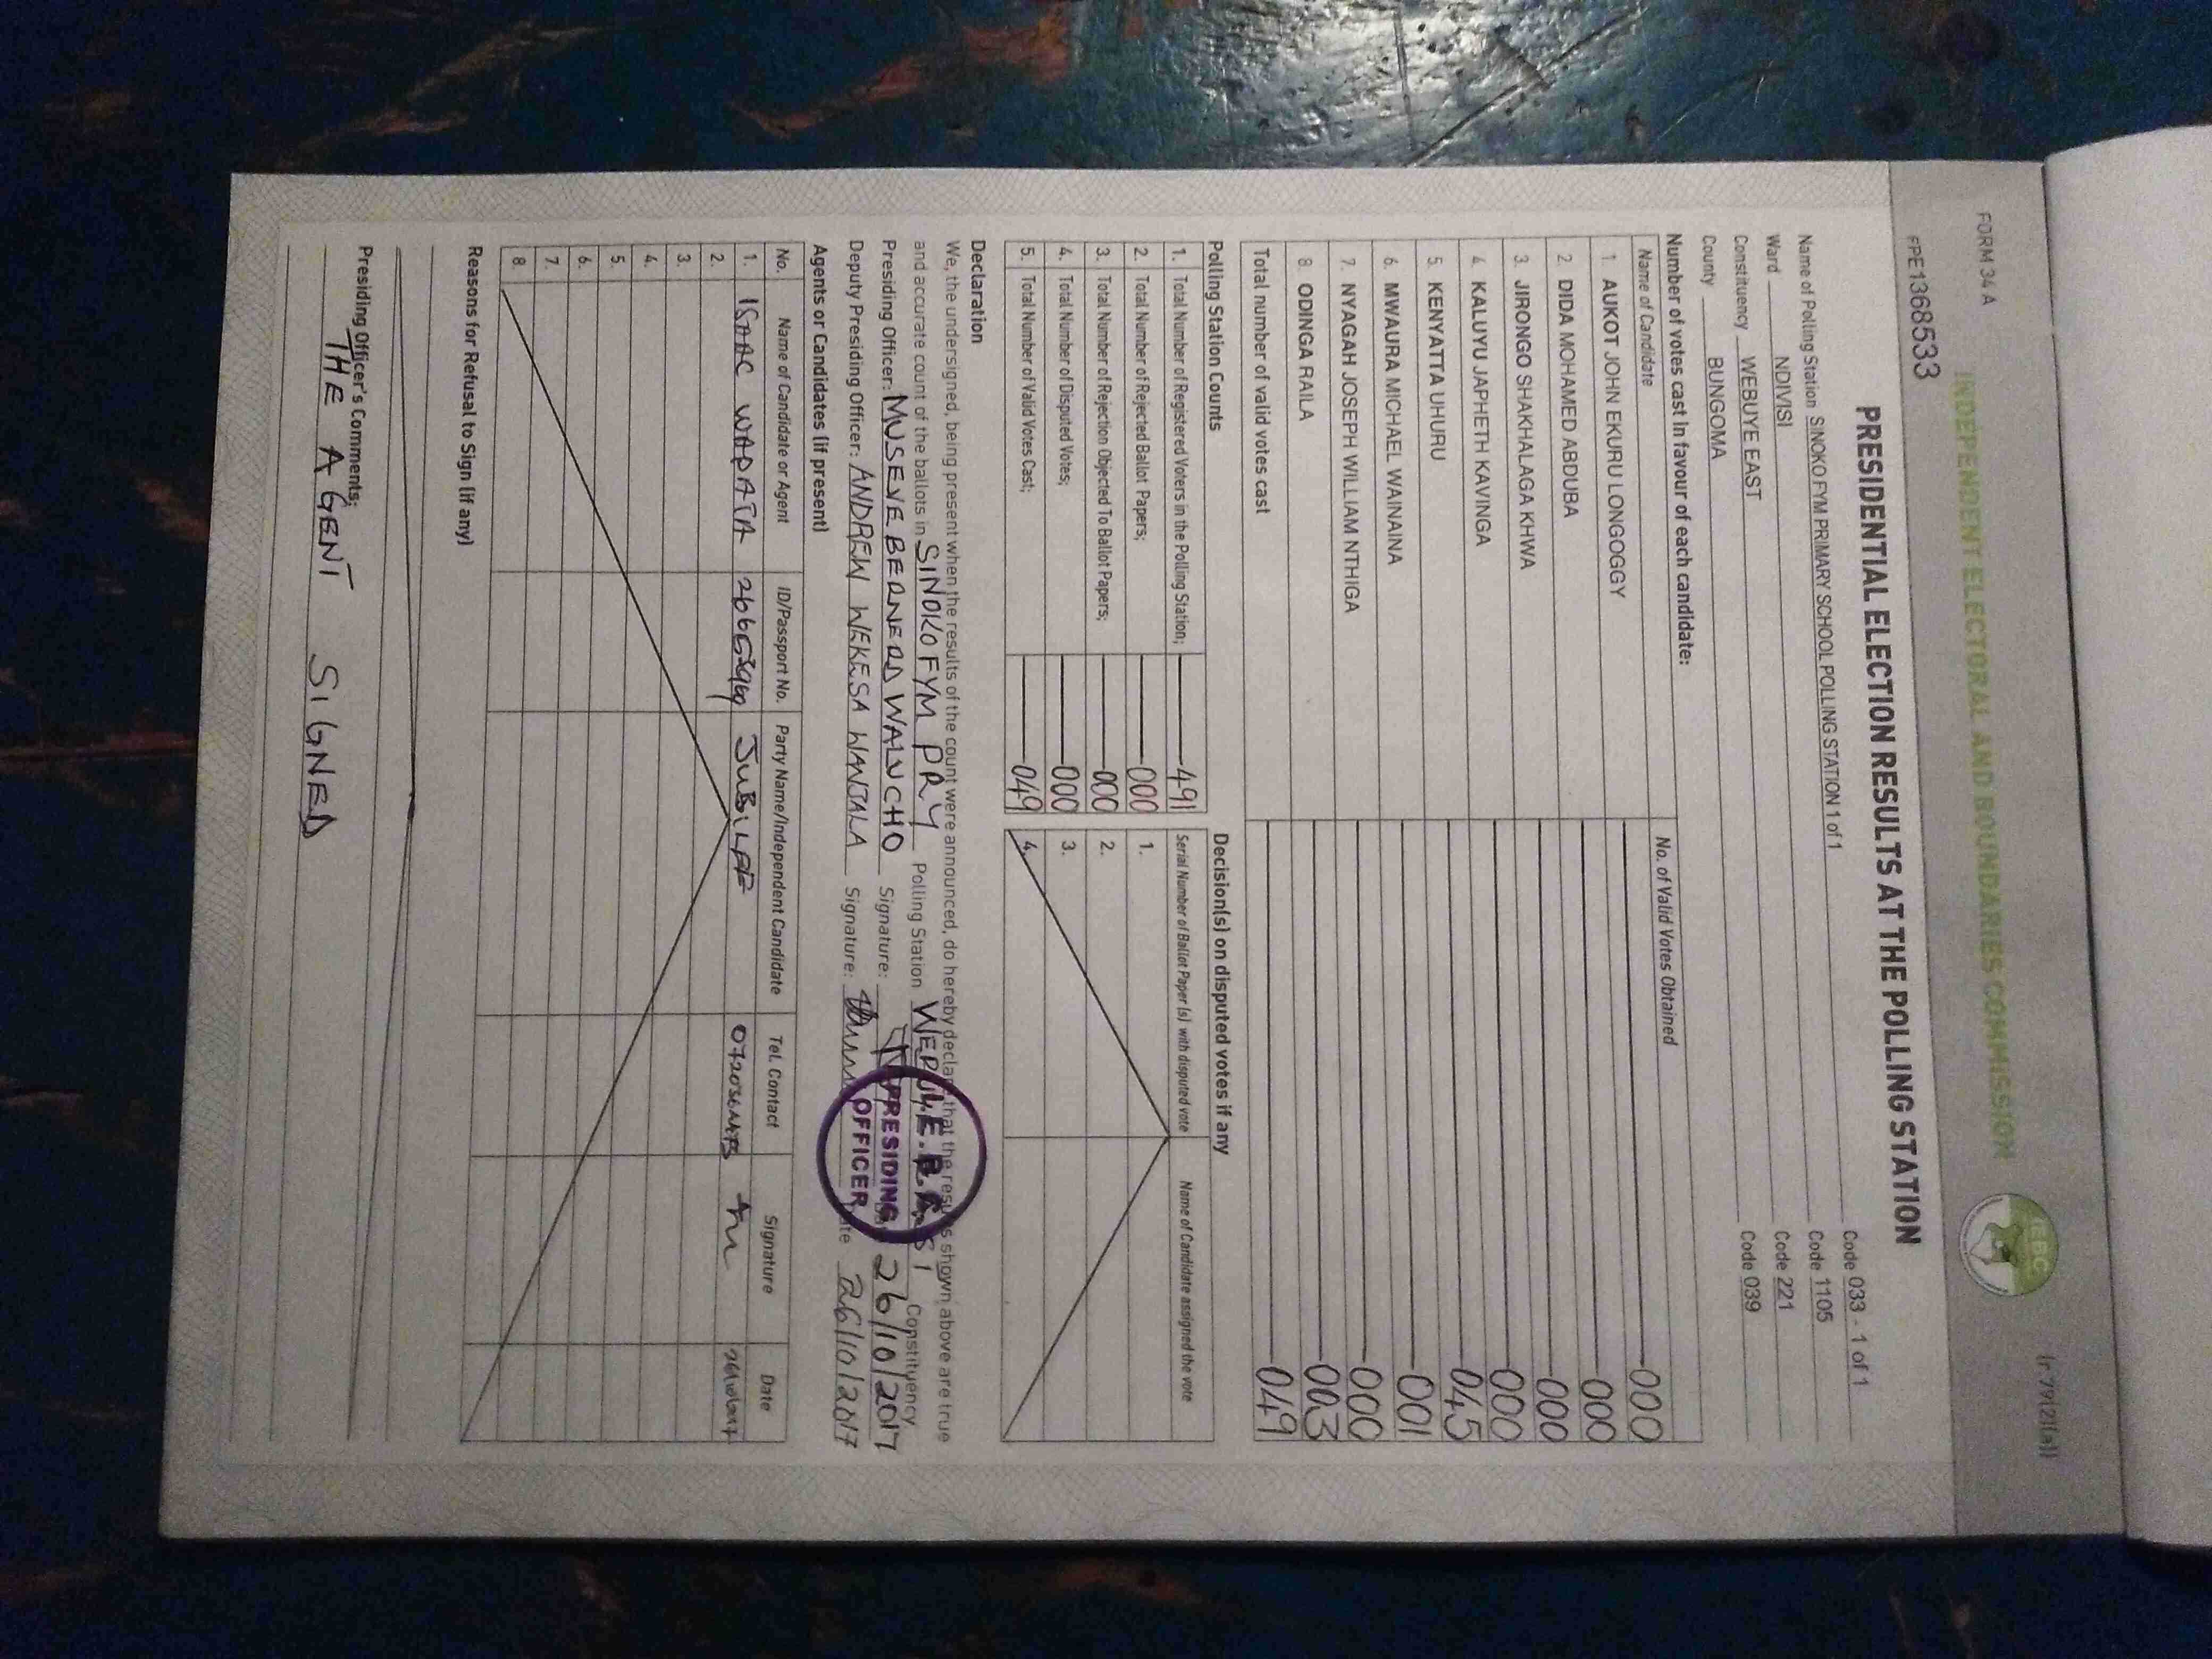 FORM 34 A
(r.79(2)(a))
INDEPENDENT ELECTORAL AND BOUNDARIES COMMISSION
IEBC
PPE1368533
PRESIDENTIAL ELECTION RESULTS AT THE POLLING STATION
Name of Polling Station SINOKO FYM PRIMARY SCHOOL POLLING STATION 1 of 1 Code 033 - 1 of 1
Ward NDIVISI Code 1105
Constituency WEBUYE EAST Code 221
County BUNGOMA Code 039
Number of votes cast in favour of each candidate:
Name of Candidate No. of Valid Votes Obtained
1. AUKOT JOHN EKURU LONGOGGY 000
2. DIDA MOHAMED ABDUBA 000
3. JIRONGO SHAKHALAGA KHWA 000
4. KALUYU JAPHETH KAVINGA 000
5. KENYATTA UHURU 045
6. MWAURA MICHAEL WAINAINA 001
7. NYAGAH JOSEPH WILLIAM NTHIGA 000
8. ODINGA RAILA 003
Total number of valid votes cast 049
Polling Station Counts
1. Total Number of Registered Voters in the Polling Station; 491
2. Total Number of Rejected Ballot Papers; 000
3. Total Number of Rejection Objected To Ballot Papers; 000
4. Total Number of Disputed Votes; 000
5. Total Number of Valid Votes Cast; 049
Decision(s) on disputed votes if any
Serial Number of Ballot Paper (s) with disputed vote Name of Candidate assigned the vote
1.
2.
3.
4.
Declaration
We, the undersigned, being present when the results of the count were announced, do hereby declare that the results shown above are true
and accurate count of the ballots in SINOKO FYM PRY Polling Station Constituency
Presiding Officer: MUSEVE BERNERD WALUCHO Signature: 26/10/2017
Deputy Presiding Officer: ANDREW WEKESA WANJALA Signature: Date 26/10/2017
PRESIDING
OFFICER
Agents or Candidates (if present)
No. Name of Candidate or Agent ID/Passport No. Party Name/Independent Candidate Tel. Contact Signature Date
1. ISAAC WAPATA JUBILEE 26/10/2017
2.
3.
4.
5.
6.
7.
8.
Reasons for Refusal to Sign (if any)
Presiding Officer's Comments;
THE AGENT SIGNED